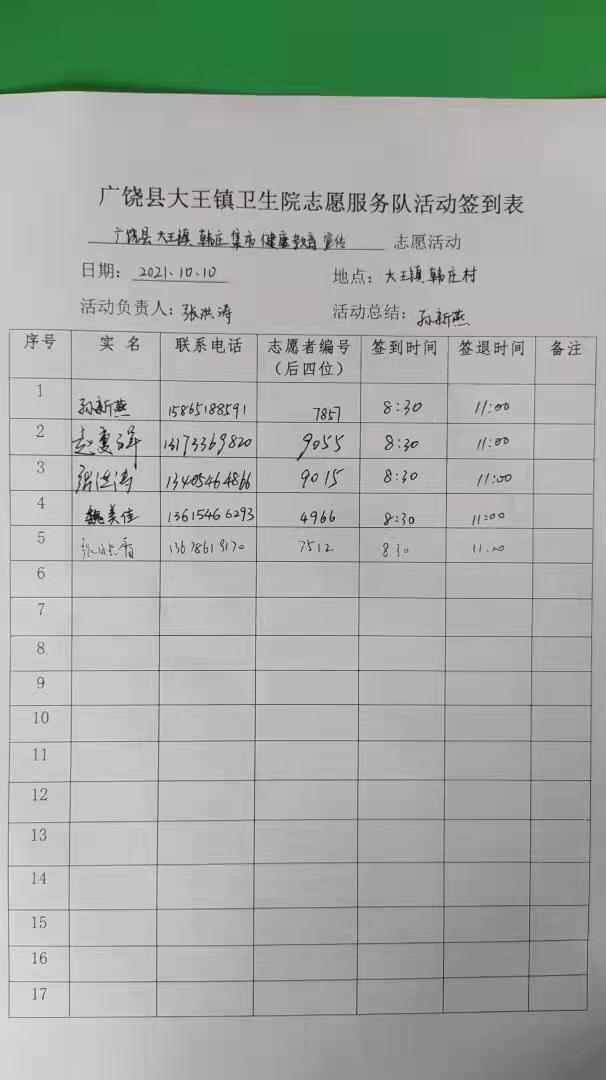 广饶县大王镇卫生院志愿服务队活动签到表
广饶县大王镇韩庄集市健康教育宣传 志愿活动
日期：2021.10.10 地点：大王镇韩庄村
活动负责人：张洪涛 活动总结：孙新燕
序号 实 名 联系电话 志愿者编号（后四位） 签到时间 签退时间 备注
1 孙新燕 15865188591 7857 8:30 11:00
2 赵 13173369820 9055 8:30 11:00
3 张洪涛 13405464866 9015 8:30 11:00
4 魏美佳 13615466293 4966 8:30 11:00
5 张 香 13678619170 7512 8:30 11:00
6
7
8
9
10
11
12
13
14
15
16
17